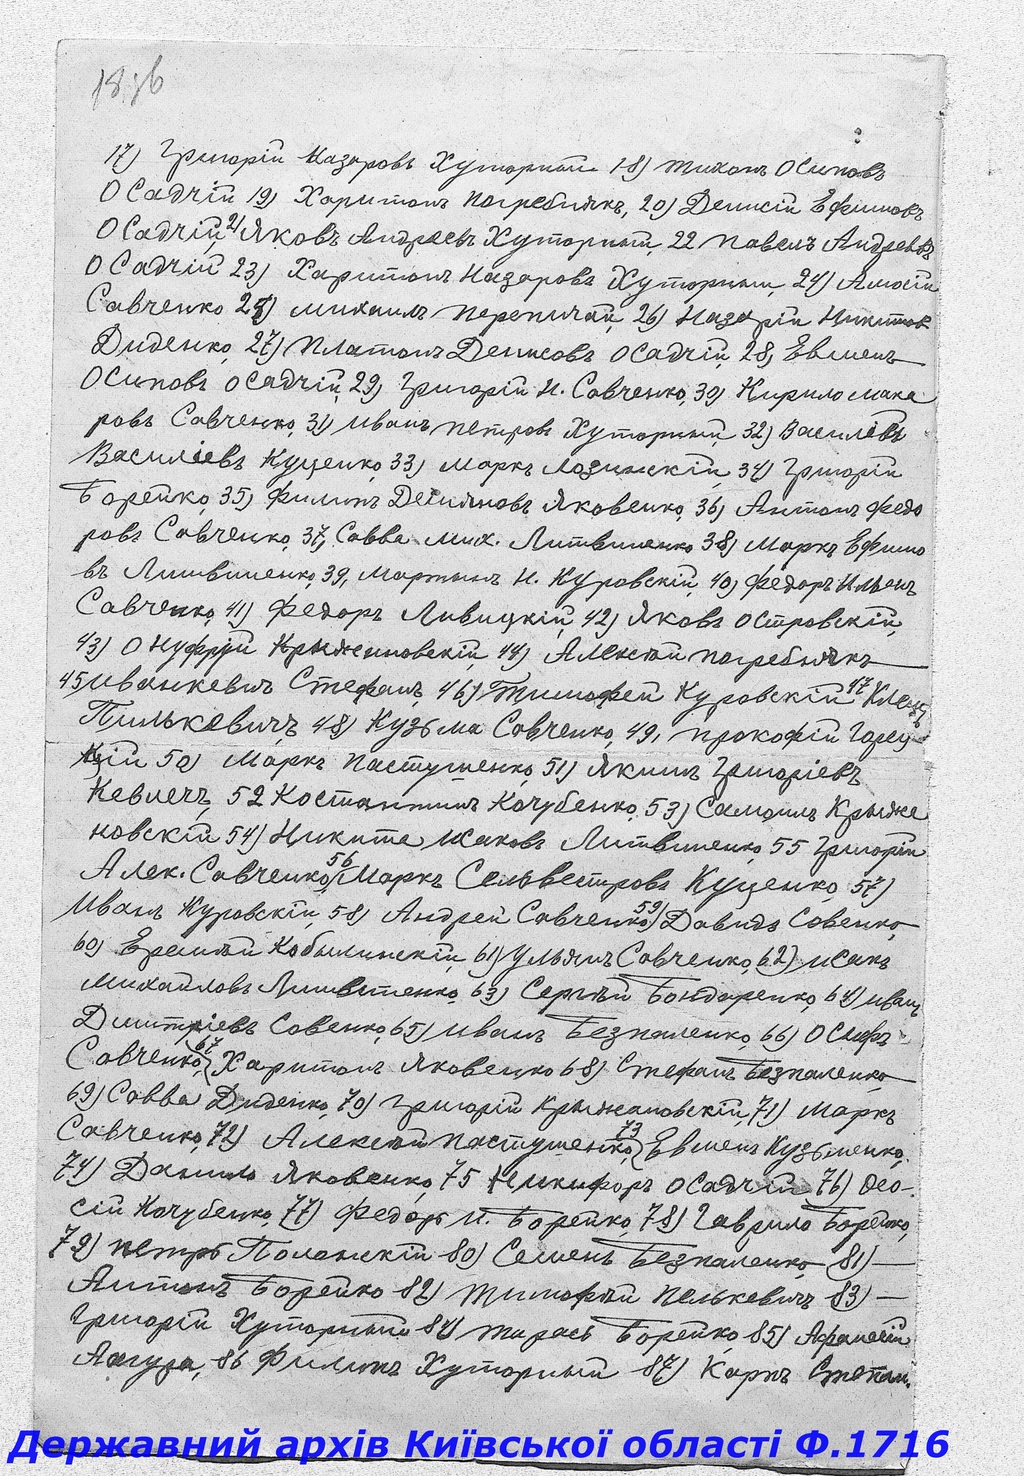 17) Григорій Назаровъ Хуторный 18) Тихонъ Осиповъ
Осадчій 19) Харитонъ Погребнякъ, 20) Денисій Ефимовъ
Осадчій 21) Яковъ Андреевъ Хуторный, 22 Павелъ Андреевъ
Осадчій 23) Харитонъ Назаровъ Хуторный, 24)
Савченко 25) Михаилъ Перепичай, 26) Назарій Никитовъ
Диденко, 27) Платонъ Денисовъ Осадчій, 28, Евменъ
Осиповъ Осадчій, 29, Григорій И. Савченко, 30) Кирило Мака
ровъ Савченко, 31) Иванъ Петровъ Хуторный, 32) Василій
Василіевъ Куценко, 33) Маркъ Лозинскій, 34) Григорій
Борейко, 35) Филипъ Демяновъ Яковенко, 36) Антонъ Федо
ровъ Савченко, 37, Савва Мих. Литвиненко 38) Маркъ Ефимо
въ Литвиненко, 39, Мартынъ И. Куровскій, 40) Федоръ Ильенъ
Савченко, 41) Федоръ Ливицкій, 42) Яковъ Островскій,
43) Онуфрій Крыжановскій, 44) Алексѣй Погребнякъ
45 Иванкевичъ Стефанъ, 46) Тимофей Куровскій 47
Пилькевичъ, 48) Кузьма Савченко, 49, Прокофій Горец
кій 50) Маркъ Пастушенко, 51) Якимъ Григоріевъ
52 Костантинъ Кочубенко, 53) Самоилъ Крыжа
новскій 54) Никита Исаковъ Литвиненко, 55 Григорій
Алек. Савченко, 56) Маркъ Сельвестровъ Куценко, 57)
Иванъ Куровскій, 58) Андрей Савченко 59) Давидъ Совенко,
60) Еремѣй Кобылинскій, 61) Ульянъ Савченко, 62) Исакъ
Михайловъ Литвиненко, 63) Сергѣй Бондаренко, 64) Иванъ
Дмитріевъ Совенко, 65) Иванъ Безпаленко, 66) Осифъ
Савченко, 67) Харитонъ Яковенко 68) Стефанъ Безпаленко
69) Савва Диденко, 70) Григорій Крыжановскій, 71) Маркъ
Савченко, 72) Алексѣй Пастушенко, 73) Евменъ Кузьменко,
74) Данило Яковенко, 75 Никифоръ Осадчій 76) Ѳео-
сій Кочубенко, 77) Федоръ И. Борейко, 78) Гаврило Борейко,
79) Петръ Полонскій 80) Семенъ Безпаленко, 81) —
Антонъ Борейко 82) Тимофѣй Пелькевичъ 83) —
Григорій Хуторный 84) Тарасъ Борейко, 85) Афанасій
86 Филипъ Хуторный 87) Карпъ Степан.
Державний архів Київської області Ф.1716